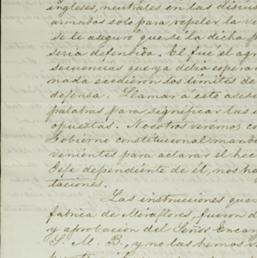 ingleses, neutrales en las discus
armados solo para repeler la vi
se le aseguró que si la dicha p
seria defendida. El fué el agr
secuencias que ya dicha oper
nada escedieron los límites de
defensa. Llamar á este ases
palabras para significar las
opuestas. Nosotros veremos co
Gobierno constitucional mand
venientes para aclarar el hec
Jefe dependiente de él, nos ha
taciones.
Las instrucciones que
fábrica de Miraflores, fueron d
y aprobacion del Señor Encar
S. M. B., y no las hemos v